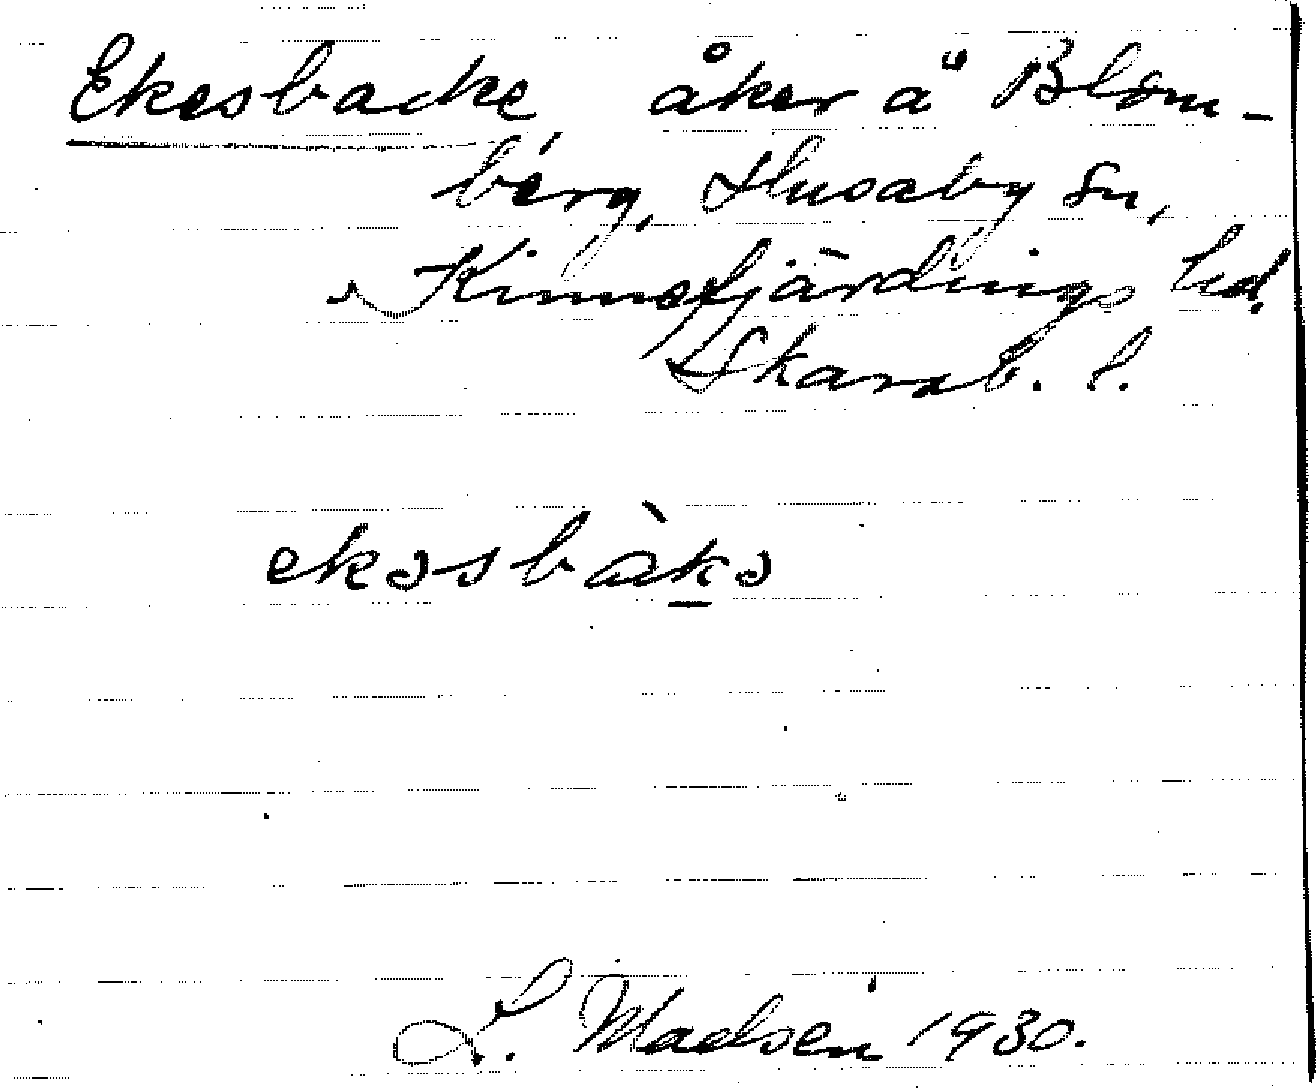 Ekesbacke åker å Blom-
berg, Husaby sn,
Kinnefjärdings hd,
Skarab. l.
ekəsbàkə
L. Madsén 1930.